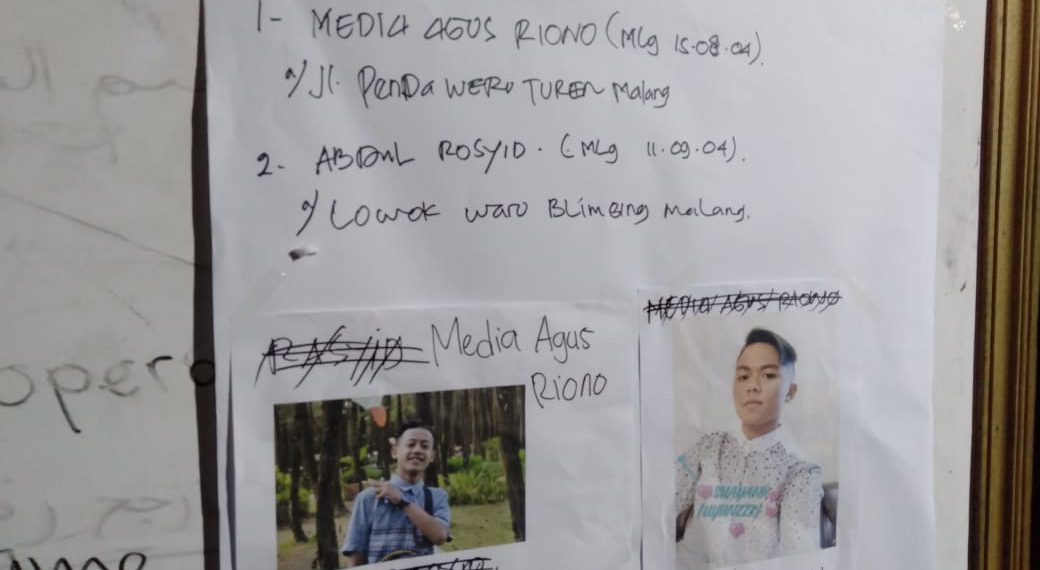 1- MEDIA AGUS RIONO (MLg 15.08.04).
Jl. PenDa WERU TUREN Malang
2- ABDUL ROSYID. (MLg 11.09.04).
Lowok waru BLimBing malang.
Media Agus
Riono
MEDIA AGUS RIONO
opero